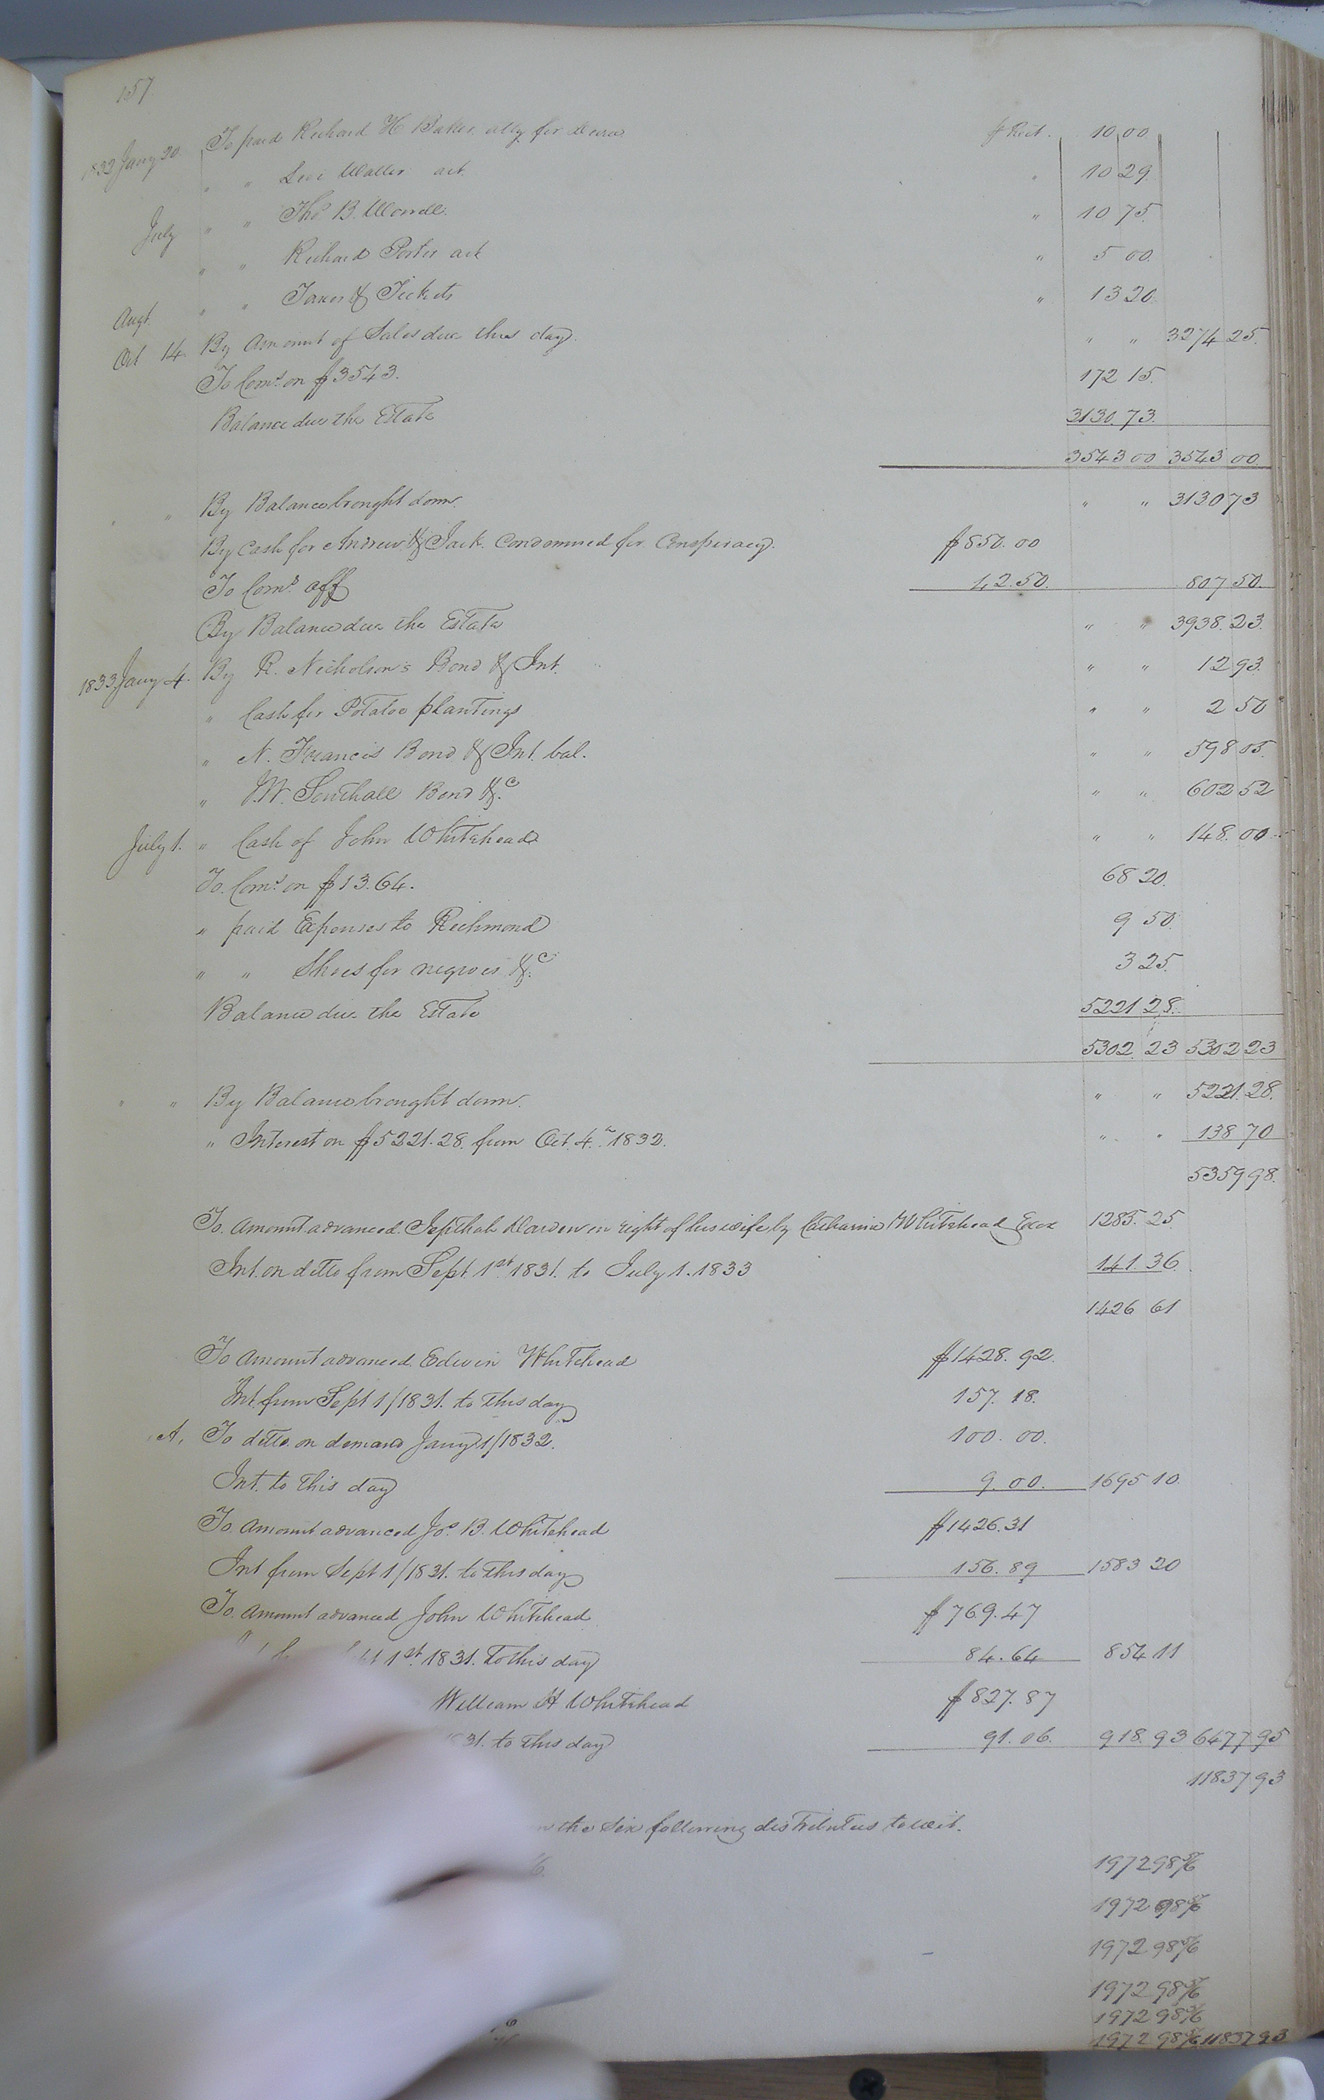 157
1832 Jany 20 To paid Richard H Baker atty for Decr p Rect. 10 00
" " Levi Waller act " 10 29
July " " Thos B. Worrell. " 10 75.
" " Richard Porter act " 5 00.
Augt. " " Taxes & Tickets " 13 20
Oct 14. By Amount of Sales due this day. " " 3274 25.
To Coms. on $3543. 172 15.
Balance due the Estate 3130. 73.
3543 00 3543 00
" " By Balance brought down. " " 3130 73
By cash for Andrew & Jack. condemned for conspiracy. $850. 00
To Coms. off 42. 50. 807 50.
By Balance due the Estate " " 3938. 23.
1833 Jany 4. By R. Nicholson's Bond & Int. " " 12 93.
" Cash for Potatoe plantings " " 2 50
" N. Francis Bond & Int. bal. " " 598 05.
" J.W. Southall Bond &c " " 602 52
July 1. " Cash of John Whitehead " " 148. 00
To. Coms. on $13.64. 68 20.
" paid Expenses to Richmond 9 50.
" " Shoes for negroes &c. 3 25.
Balance due the Estate 5221 28.
5302. 23 5302 23
" " By Balance brought down. " " 5221. 28.
" Interest on $5221. 28. from Oct. 4th 1832. " " 138 70
5359 98.
To. Amount advanced. Jepthah Darden in right of his wife by Catharine Whitehead Excx 1285. 25.
Int. on ditto from Sept. 1st 1831. to July 1. 1833 141. 36
1426 61
To Amount advanced Edwin Whitehead $1428. 92.
Int. from Sept 1/1831. to this day 157. 18.
A. To ditto. on demand Jany 1/1832. 100. 00.
Int. to this day 9. 00. 1695 10.
To. Amount advanced Jos. B. Whitehead $1426.31
Int from Sept 1/1831. to this day 156. 89 1583 20
To. Amount advanced John Whitehead $769. 47
1st. 1831. to this day 84. 64 854 11
William H Whitehead $827. 87
31. to this day 91. 06. 918. 93 6477 95
11837 93
the Six following distributees to wit.
1972 98 5/6
1972 98 5/6
1972. 98 5/6
1972 98 5/6
1972 98 5/6
1972 98 5/6 11837 93